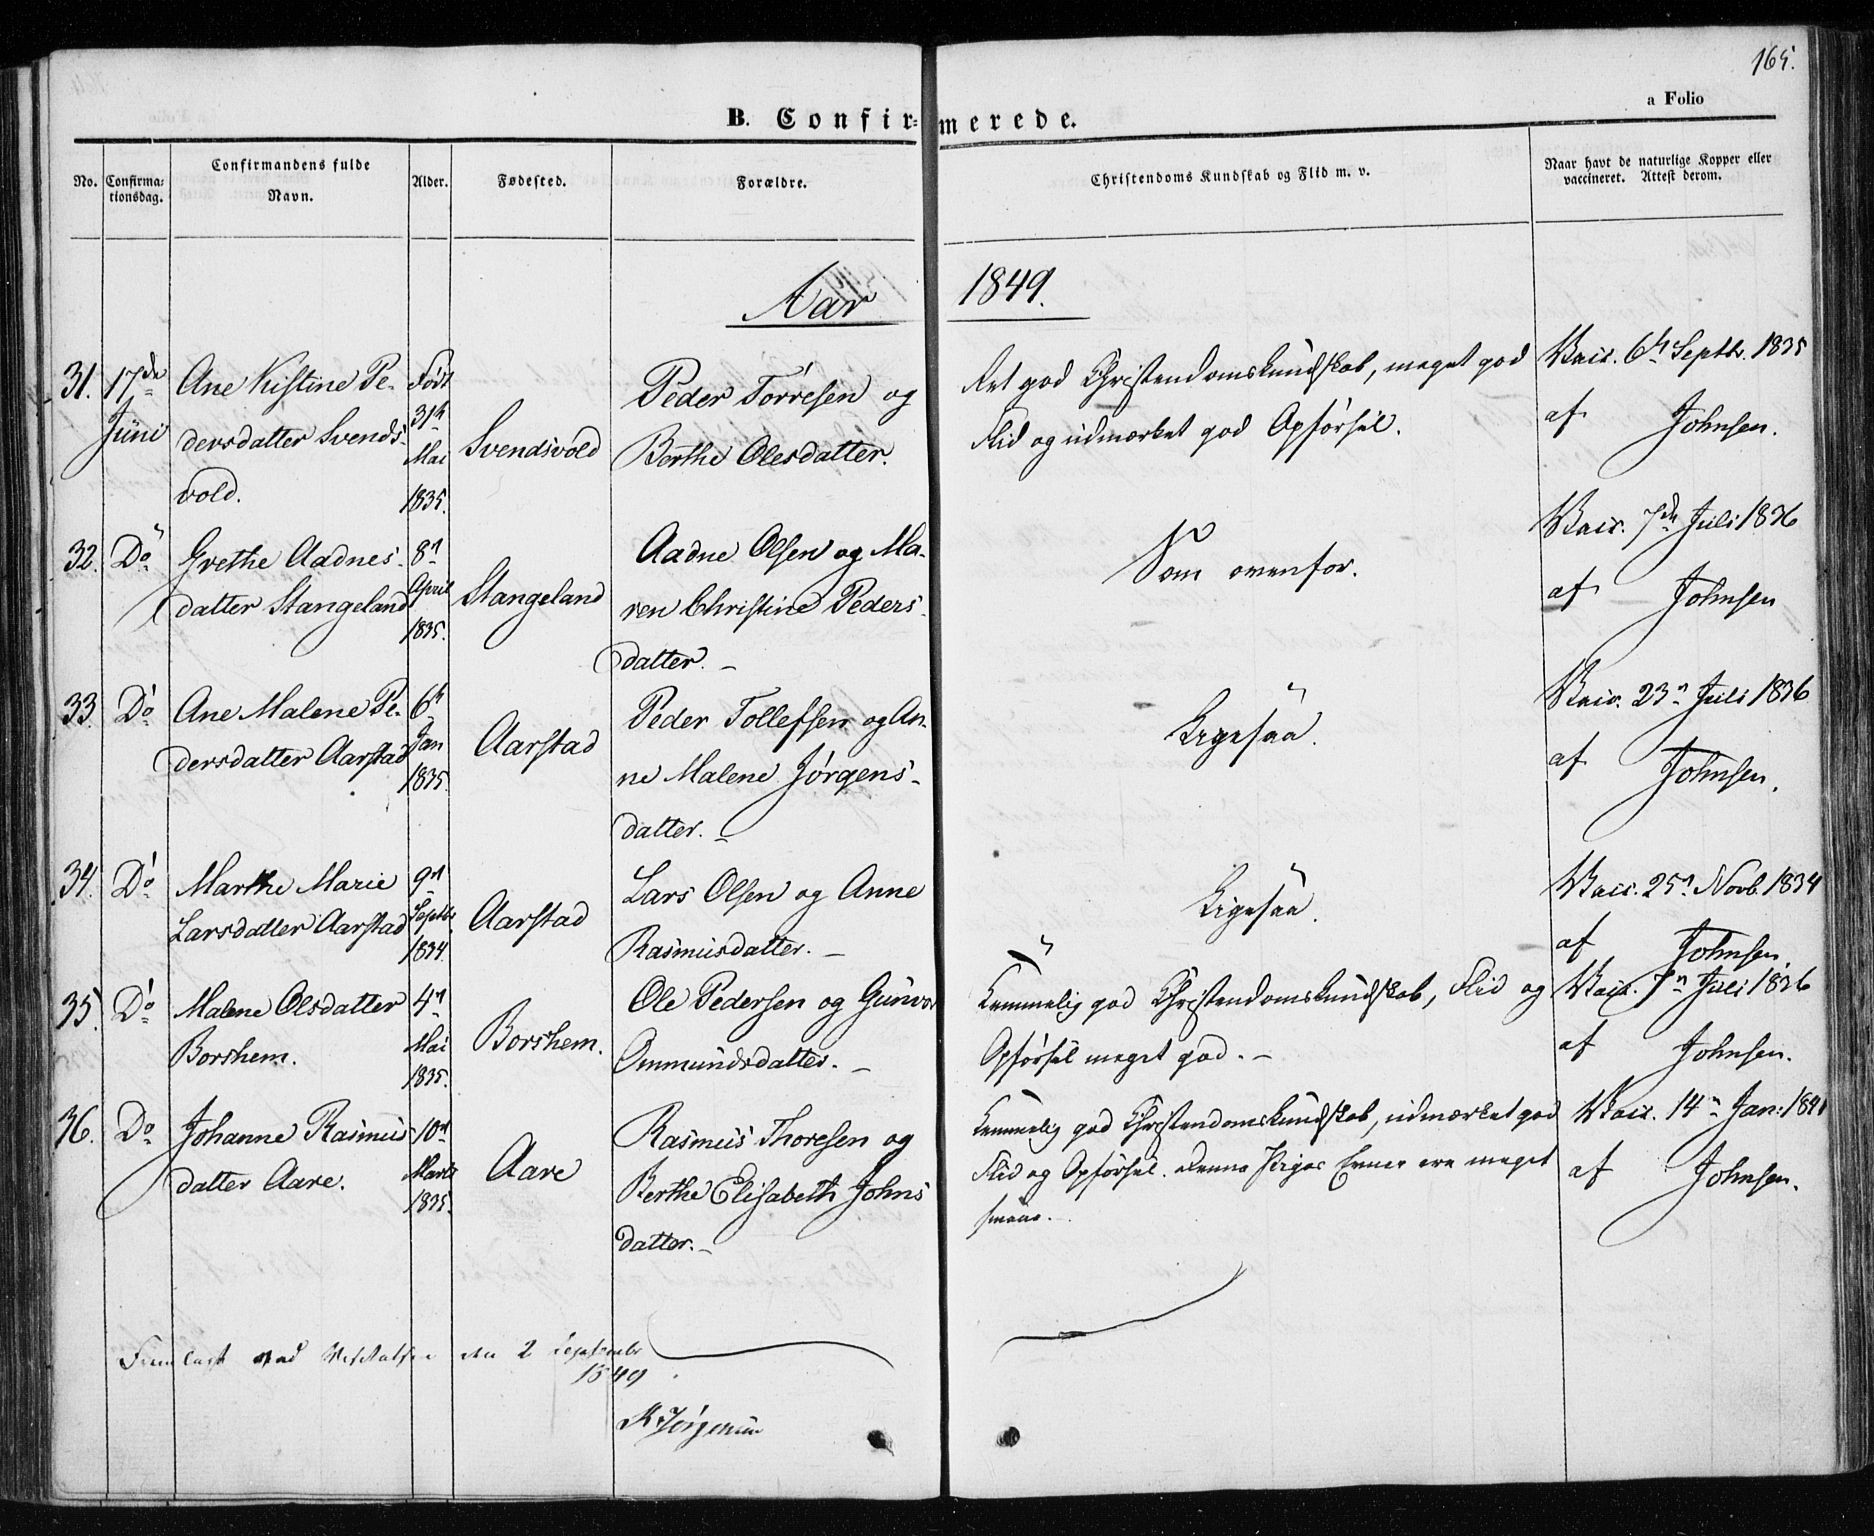 165.
a Folio
B. Confirmerede.
No.
Confirmationsdag.
Confirmandens fulde Navn.
Alder.
Fødested.
Forældre.
Christendoms Kundskab og Flid m. v.
Naar havt de naturlige Kopper eller vaccineret. Attest derom.
Aar 1849.
31.
17de
Juni
Ane Kistine Pe-
dersdatter Svends-
vold.
Født
31te
Mai
1835.
Svendsvold
Peder Tørresen og
Berthe Olesdatter.
Ret god Christendomskundskab, meget god
Flid og udmærket god Opførsel.
Vacc. 6te Septbr. 1835
af Johnsen.
32.
Do
Grethe Aadnes-
datter Stangeland
8de
April
1835.
Stangeland
Aadne Olsen og Ma-
ren Christine Peders-
datter. —
Som ovenfor.
Vacc. 7de Juli 1836
af Johnsen
33.
Do
Ane Malene Pe-
dersdatter Aarstad
6te
Jan
1835.
Aarstad
Peder Tollefsen og An-
ne Malene Jørgens-
datter. —
Ligesaa.
Vacc. 23de Juli 1836
af Johnsen.
34.
Do
Marthe Marie
Larsdatter Aarstad
9de
Septbr
1834.
Aarstad
Lars Olsen og Anne
Rasmusdatter. —
Ligesaa.
Vacc. 25de Novb. 1834
af Johnsen.
35.
Do
Malene Olsdatter
Borshem.
4de
Mai
1835.
Borshem.
Ole Pedersen og Gunvor
Ommundsdatter. —
Temmelig god Christendomskundskab, Flid og
Opførsel meget god. —
Vacc. 7de Juli 1836
af Johnsen.
36.
Do
Johanne Rasmus-
datter Aare.
10de
Marts
1835.
Aare
Rasmus Thoresen og
Berthe Elisabeth Johns
datter. —
Temmelig god Christendomskundskab, udmærket god
Flid og Opførsel. Denne Piges Evner ere meget
smaae.
Vacc. 14de Jan: 1841
af Johnsen.
Fremlagt ved Visitatsen den 2 September
1849
Jørgensen